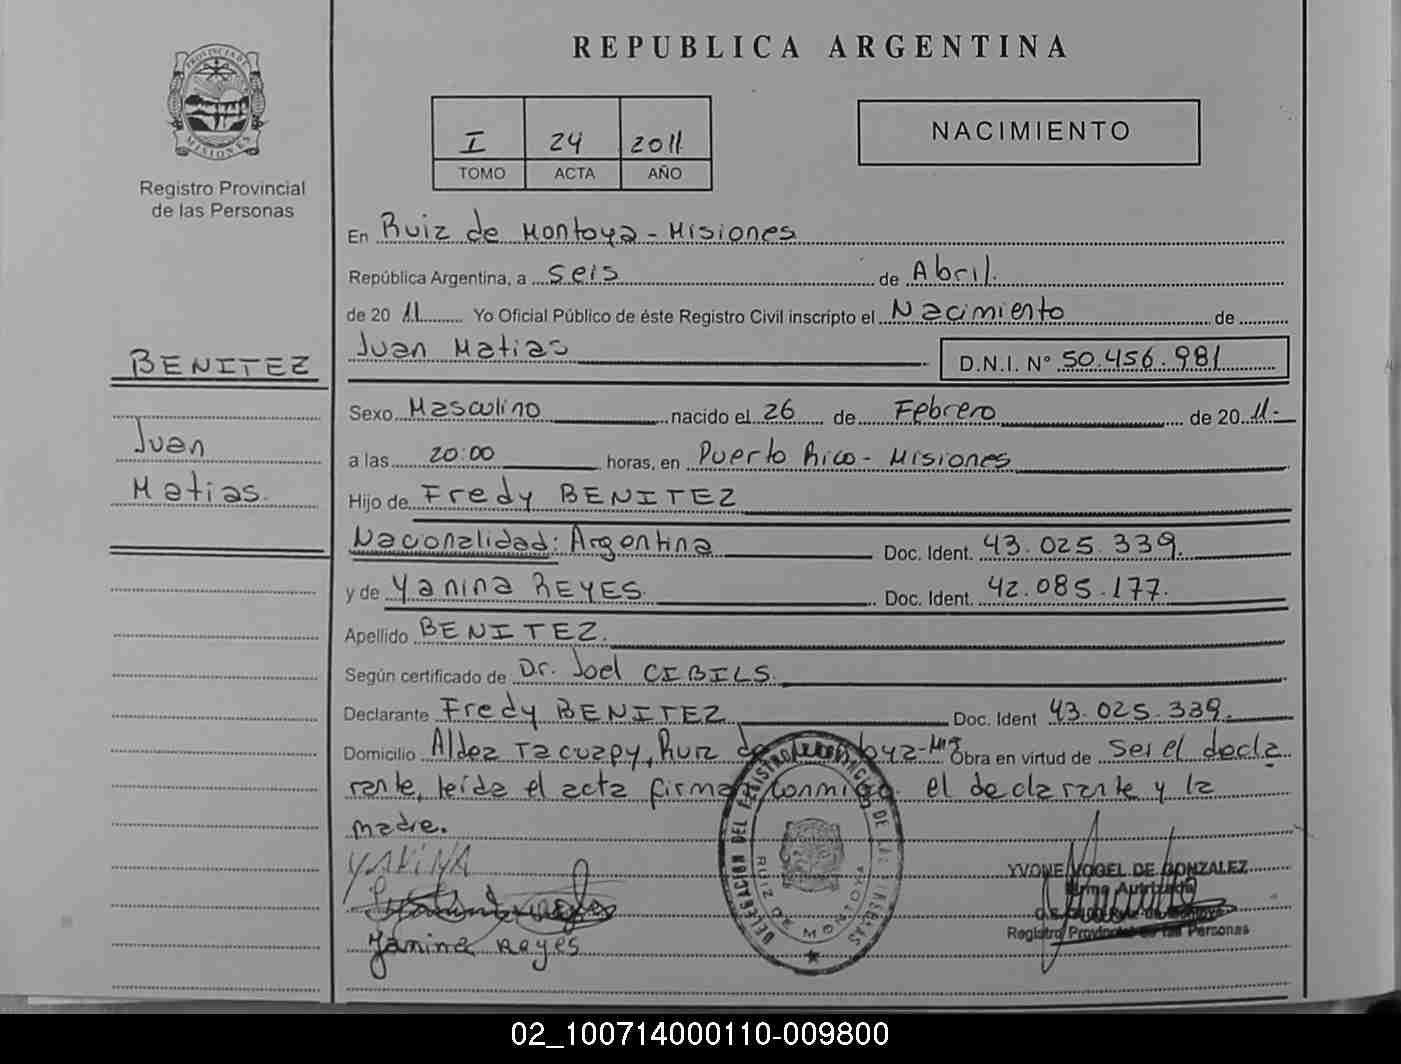 REPUBLICA ARGENTINA
PROVINCIA DE MISIONES
Registro Provincial
de las Personas
I 24 2011
TOMO ACTA AÑO
NACIMIENTO
BENITEZ
Juan
Matias.
En Ruiz de Montoya - Misiones
República Argentina, a seis de Abril.
de 20 11 Yo Oficial Público de éste Registro Civil inscripto el Nacimiento de
Juan Matias D.N.I. Nº 50.456.981
Sexo Masculino nacido el 26 de Febrero de 20 11.-
a las 20:00 horas, en Puerto Rico - Misiones
Hijo de Fredy BENITEZ
Nacionalidad: Argentina Doc. Ident. 43.025.339.
y de Yanina REYES. Doc. Ident. 42.085.177.
Apellido BENITEZ.
Según certificado de Dr. Joel CIBILS.
Declarante Fredy BENITEZ Doc. Ident 43.025.339.
Domicilio Aldea Tacuapy, Ruiz de Montoya - Mis Obra en virtud de ser el decla
rante, leída el acta firma conmigo el declarante y la
madre.
YANINA
Yanina Reyes
DELEGACION DEL REGISTRO PROVINCIAL DE LAS PERSONAS
RUIZ DE MONTOYA
YVONE VOGEL DE GONZALEZ
Firma Autorizada
Registro Provincial de las Personas
02_100714000110-009800